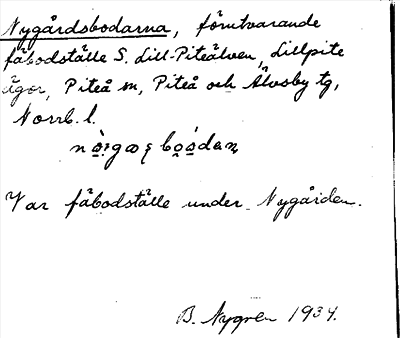 Nygårdsbodarna, förutvarande
fäbodställe S. Lill-Piteälven, Lillpite
ägor, Piteå sn, Piteå och Älvsby tg,
Norrb. l.
Var fäbodställe under Nygården.
B. Nygren 1934.